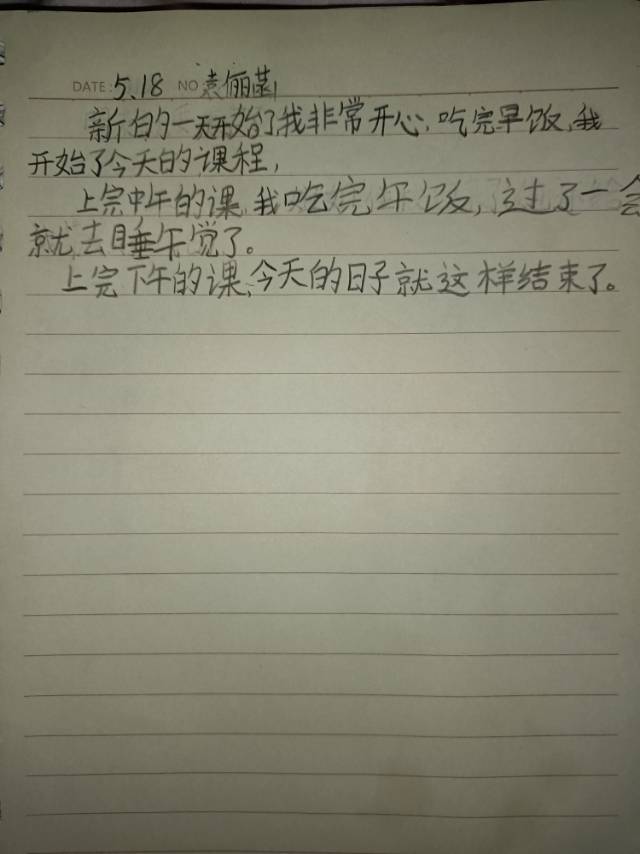 DATE: 5.18 NO 袁俪菡
新的一天开始了我非常开心,吃完早饭,我
开始了今天的课程,
上完中午的课,我吃完午饭,过了一会
就去睡午觉了。
上完下午的课,今天的日子就这样结束了。